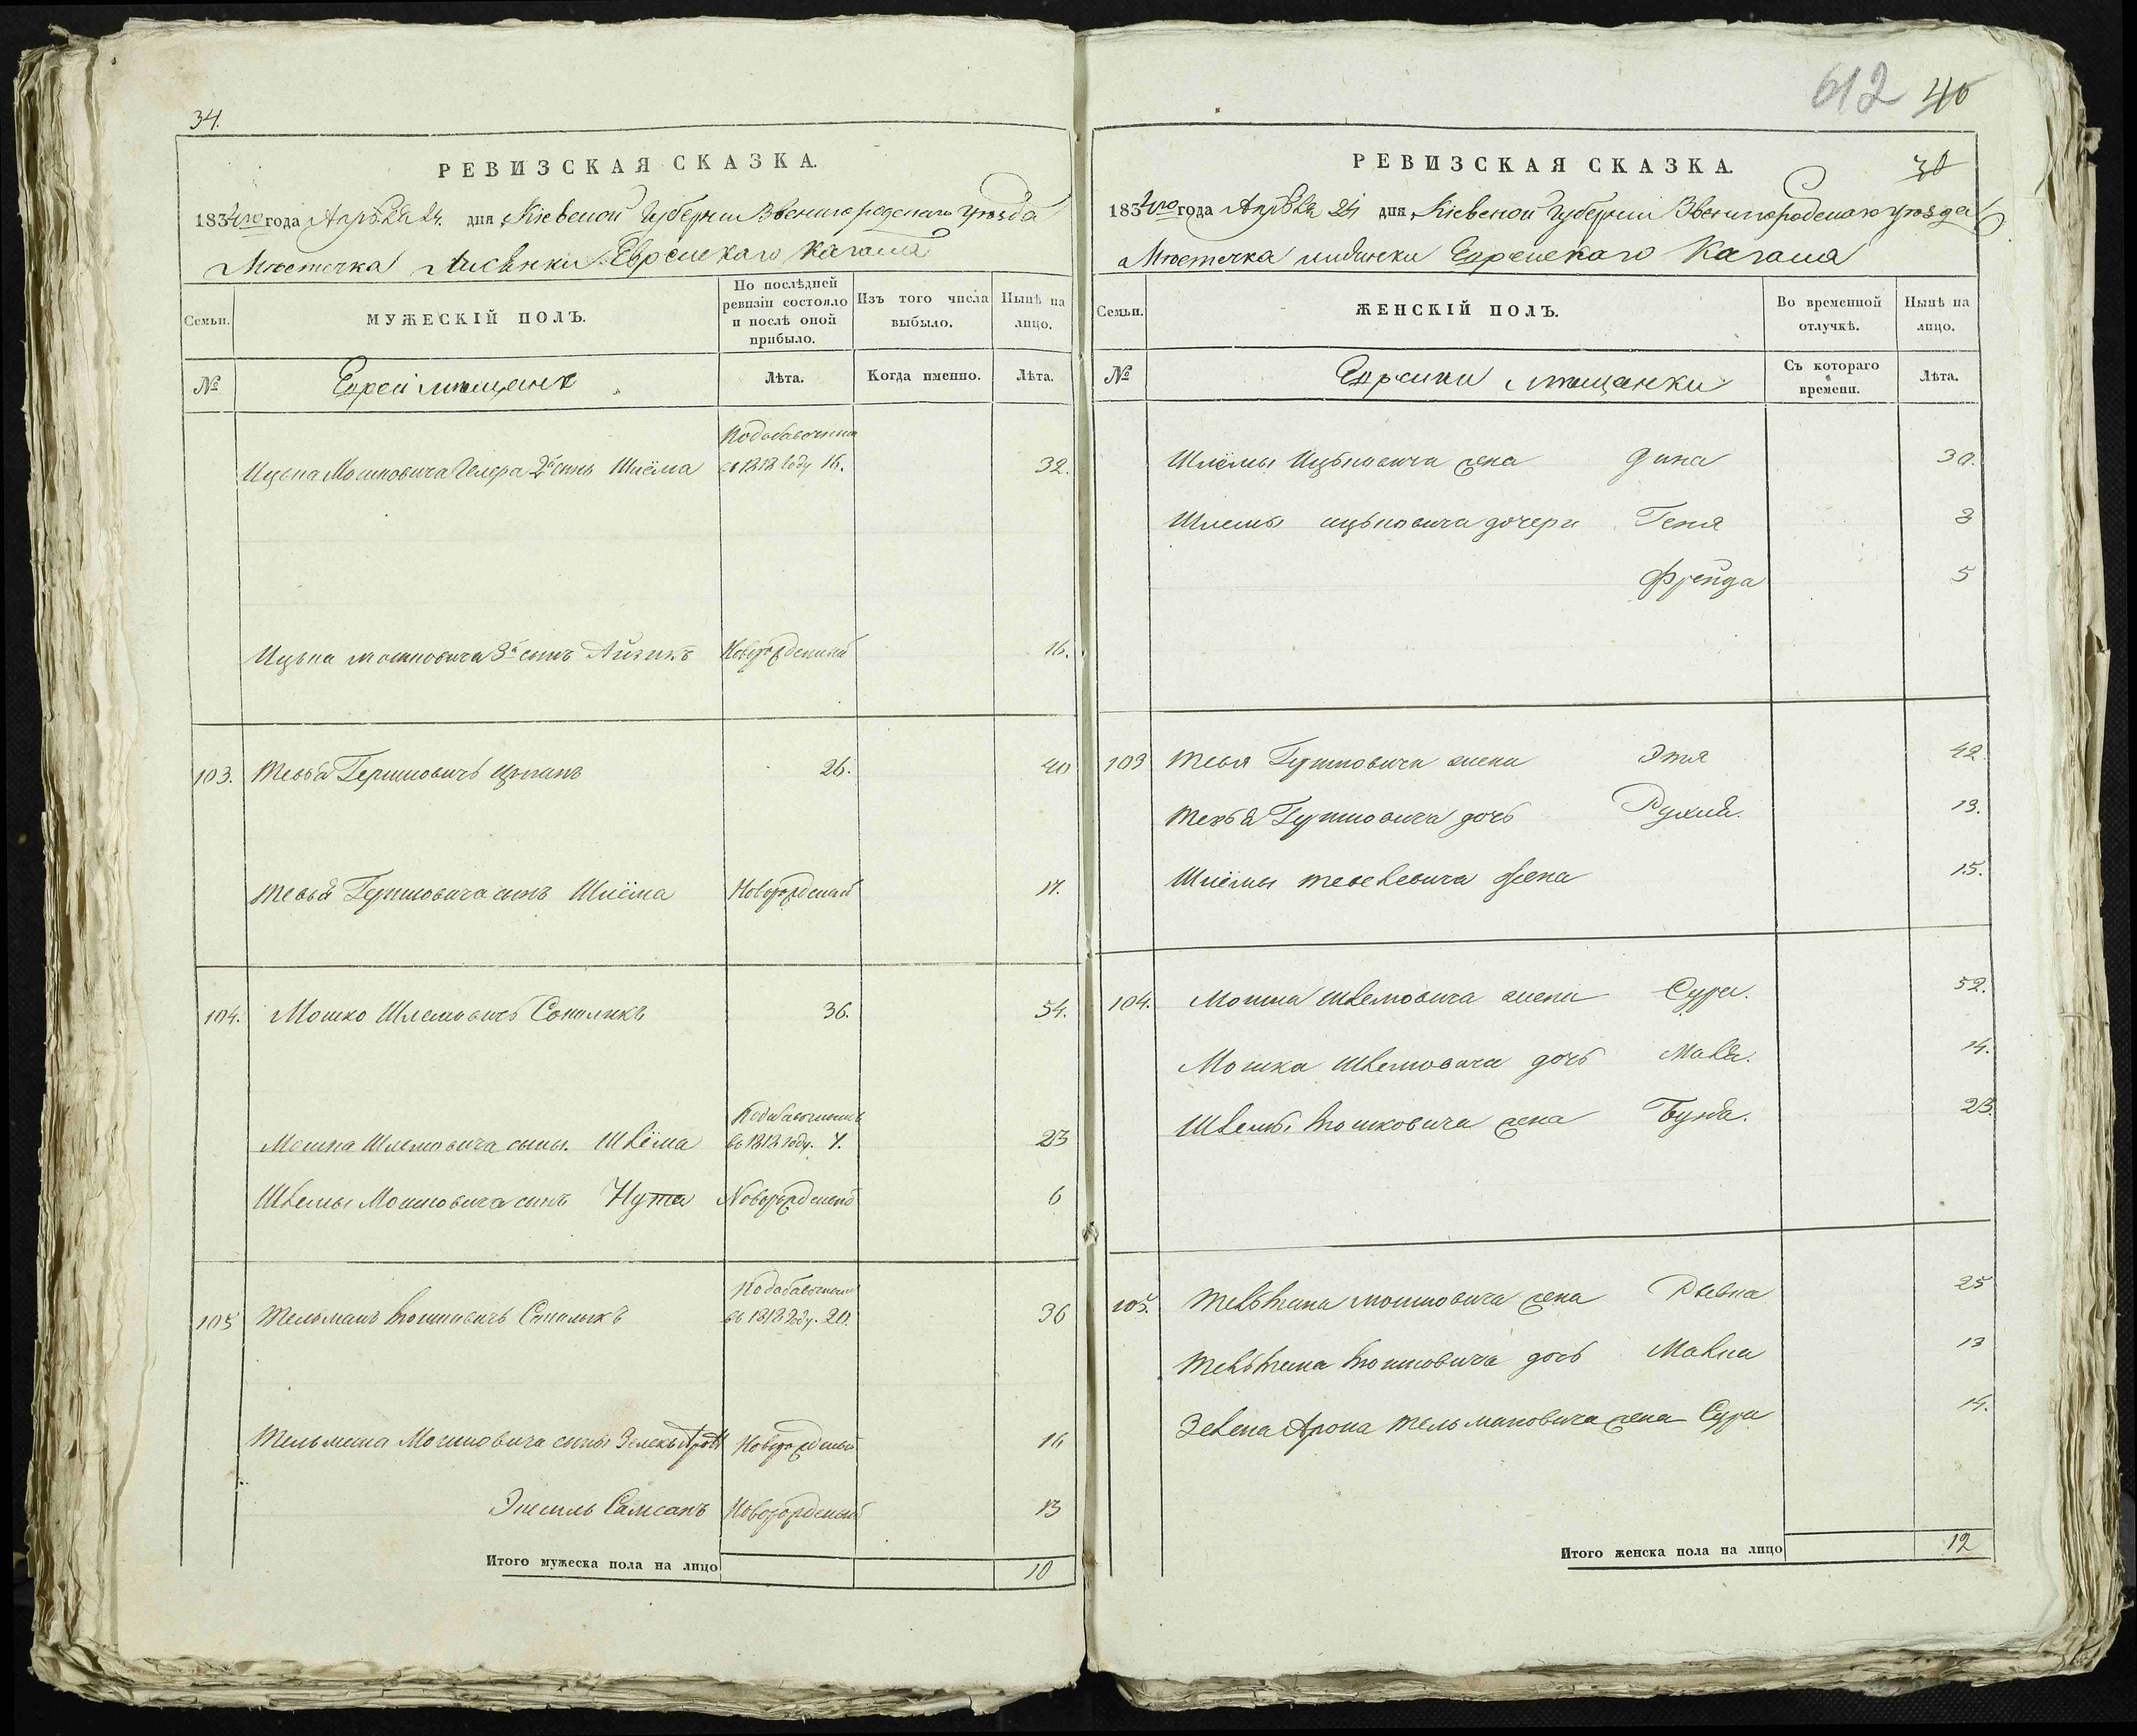 34.
РЕВИЗСКАЯ СКАЗКА.
1834го года Апрѣля 24 дня Кіевской Губерніи Звенигородскаго уѣзда
Мѣстечка Лисянки Еврейскаго Кагала
Семьи.
МУЖЕСКІЙ ПОЛЪ.
По послѣдней ревизіи состояло и послѣ оной прибыло.
Изъ того числа выбыло.
Нынѣ на лицо.
№
Евреи мѣщане
Лѣта.
Когда именно.
Лѣта.
Ицька Мошковича 2й сынъ Шлёма въ 1818 году 16. 32.
Ицька Мошковича 3й сынъ Айзикъ Новорожденный 16.
103. Тевья Гершковичъ 26. 40
Тевья Гершковича сынъ Шлёма Новорожденый 17.
104. Мошко Шлемовичъ 36. 54.
Мошка Шлемовича сыны. Шлёма въ 1818 году. 7. 23
Шлемы Мошковича сынъ Нута Новорожденный 6
105 Тельманъ Мошковичъ въ 1818 году. 20. 36
Тельмана Мошковича сыны Новорожденый 16
Новорожденый 13
Итого мужеска пола на лицо 10
612 40
30
РЕВИЗСКАЯ СКАЗКА.
1834го года Апрѣля 24 дня Кіевской Губерніи Звенигородскаго уѣзда
Мѣстечка Еврейскаго Кагала
Семьи.
ЖЕНСКІЙ ПОЛЪ.
Во временной отлучкѣ.
Нынѣ на лицо.
№
Еврейки мѣщанки
Съ котораго времени.
Лѣта.
Шлёмы Ицьковича жена Дина 30.
Шлемы ицьковича дочери Геня 8
Фрейда 5
103 Тевья Гершковича жена Этя 42.
Тевья Гершковича дочь Рухля. 13.
Шлёмы жена 15.
104. Мошка Шлемовича жена Сура. 52.
Мошка Шлемовича дочь Маля. 14.
Шлемы Мошковича жена 23.
105. Тельмана Мошковича жена 25
Тельмана Мошковича дочь Малка 13
Арона Тельмановича жена Сура 14.
Итого женска пола на лицо 12